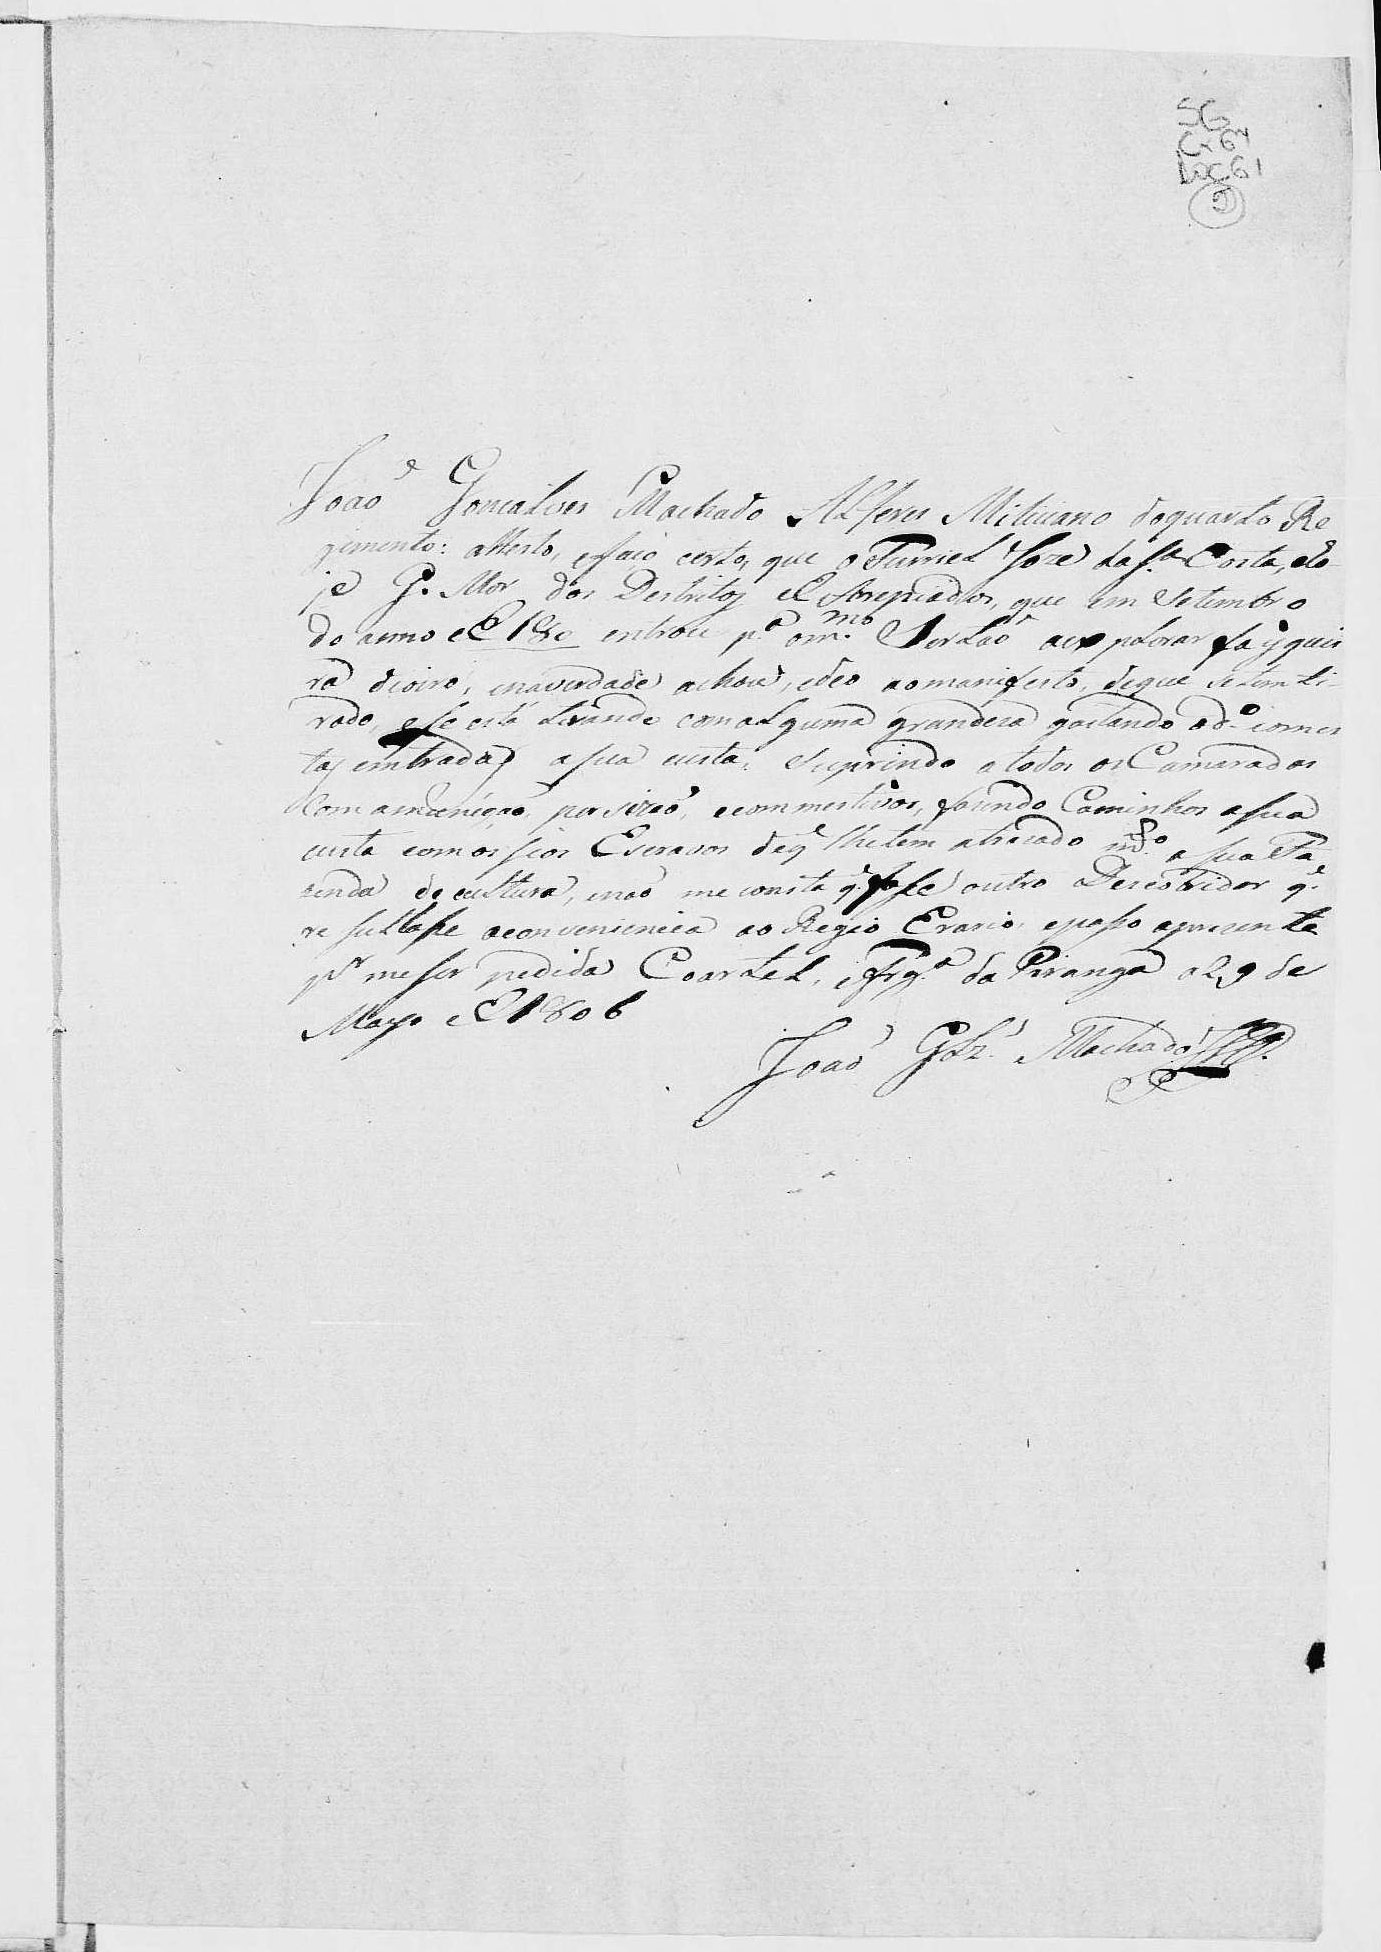 SG
Cx 67
Doc 61
João Goncalves Machado Alferes Miliciano do quarto Re
gimento: attesto, e faco certo, que o Furriel Joze da S.ª Costa, e o
je G. Mor dos Destritos que em Setembro
do anno de 180 entrou p.ª o m.mo Sertaõ a explorar fa y quei
ra de oiro, e na verdade achou, e deo ao manifesto, de que se tem ti
rado, e se está tirando com alguma grandeza gastando o d.º em es
tas entradas a sua custa, suprindo a todos os Camaradas
Com a munição, e commestivos, fazendo Caminhos a sua
custa com os seos Escravos de q̃ lhe tem atrazado m.to a sua Fa
zenda de cultura, e naõ me consta q̃ fose outro Descobridor q̃
re sultase a conveniencia ao Regio Erario, e paso a prezente
p.r me ser pedida Coartel, e frg.ª da Piranga a 29 de
Mayo de 1806
João Glz.' Machado